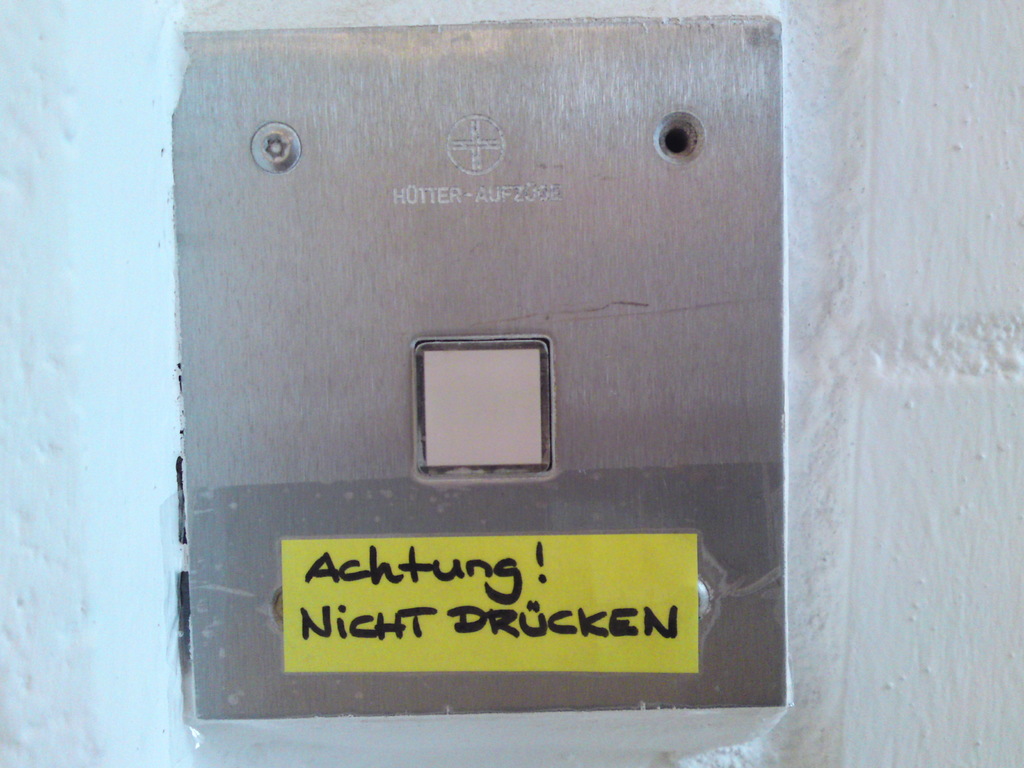 HÜTTER-AUFZÜGE
Achtung!
NiCHT DRÜCKEN